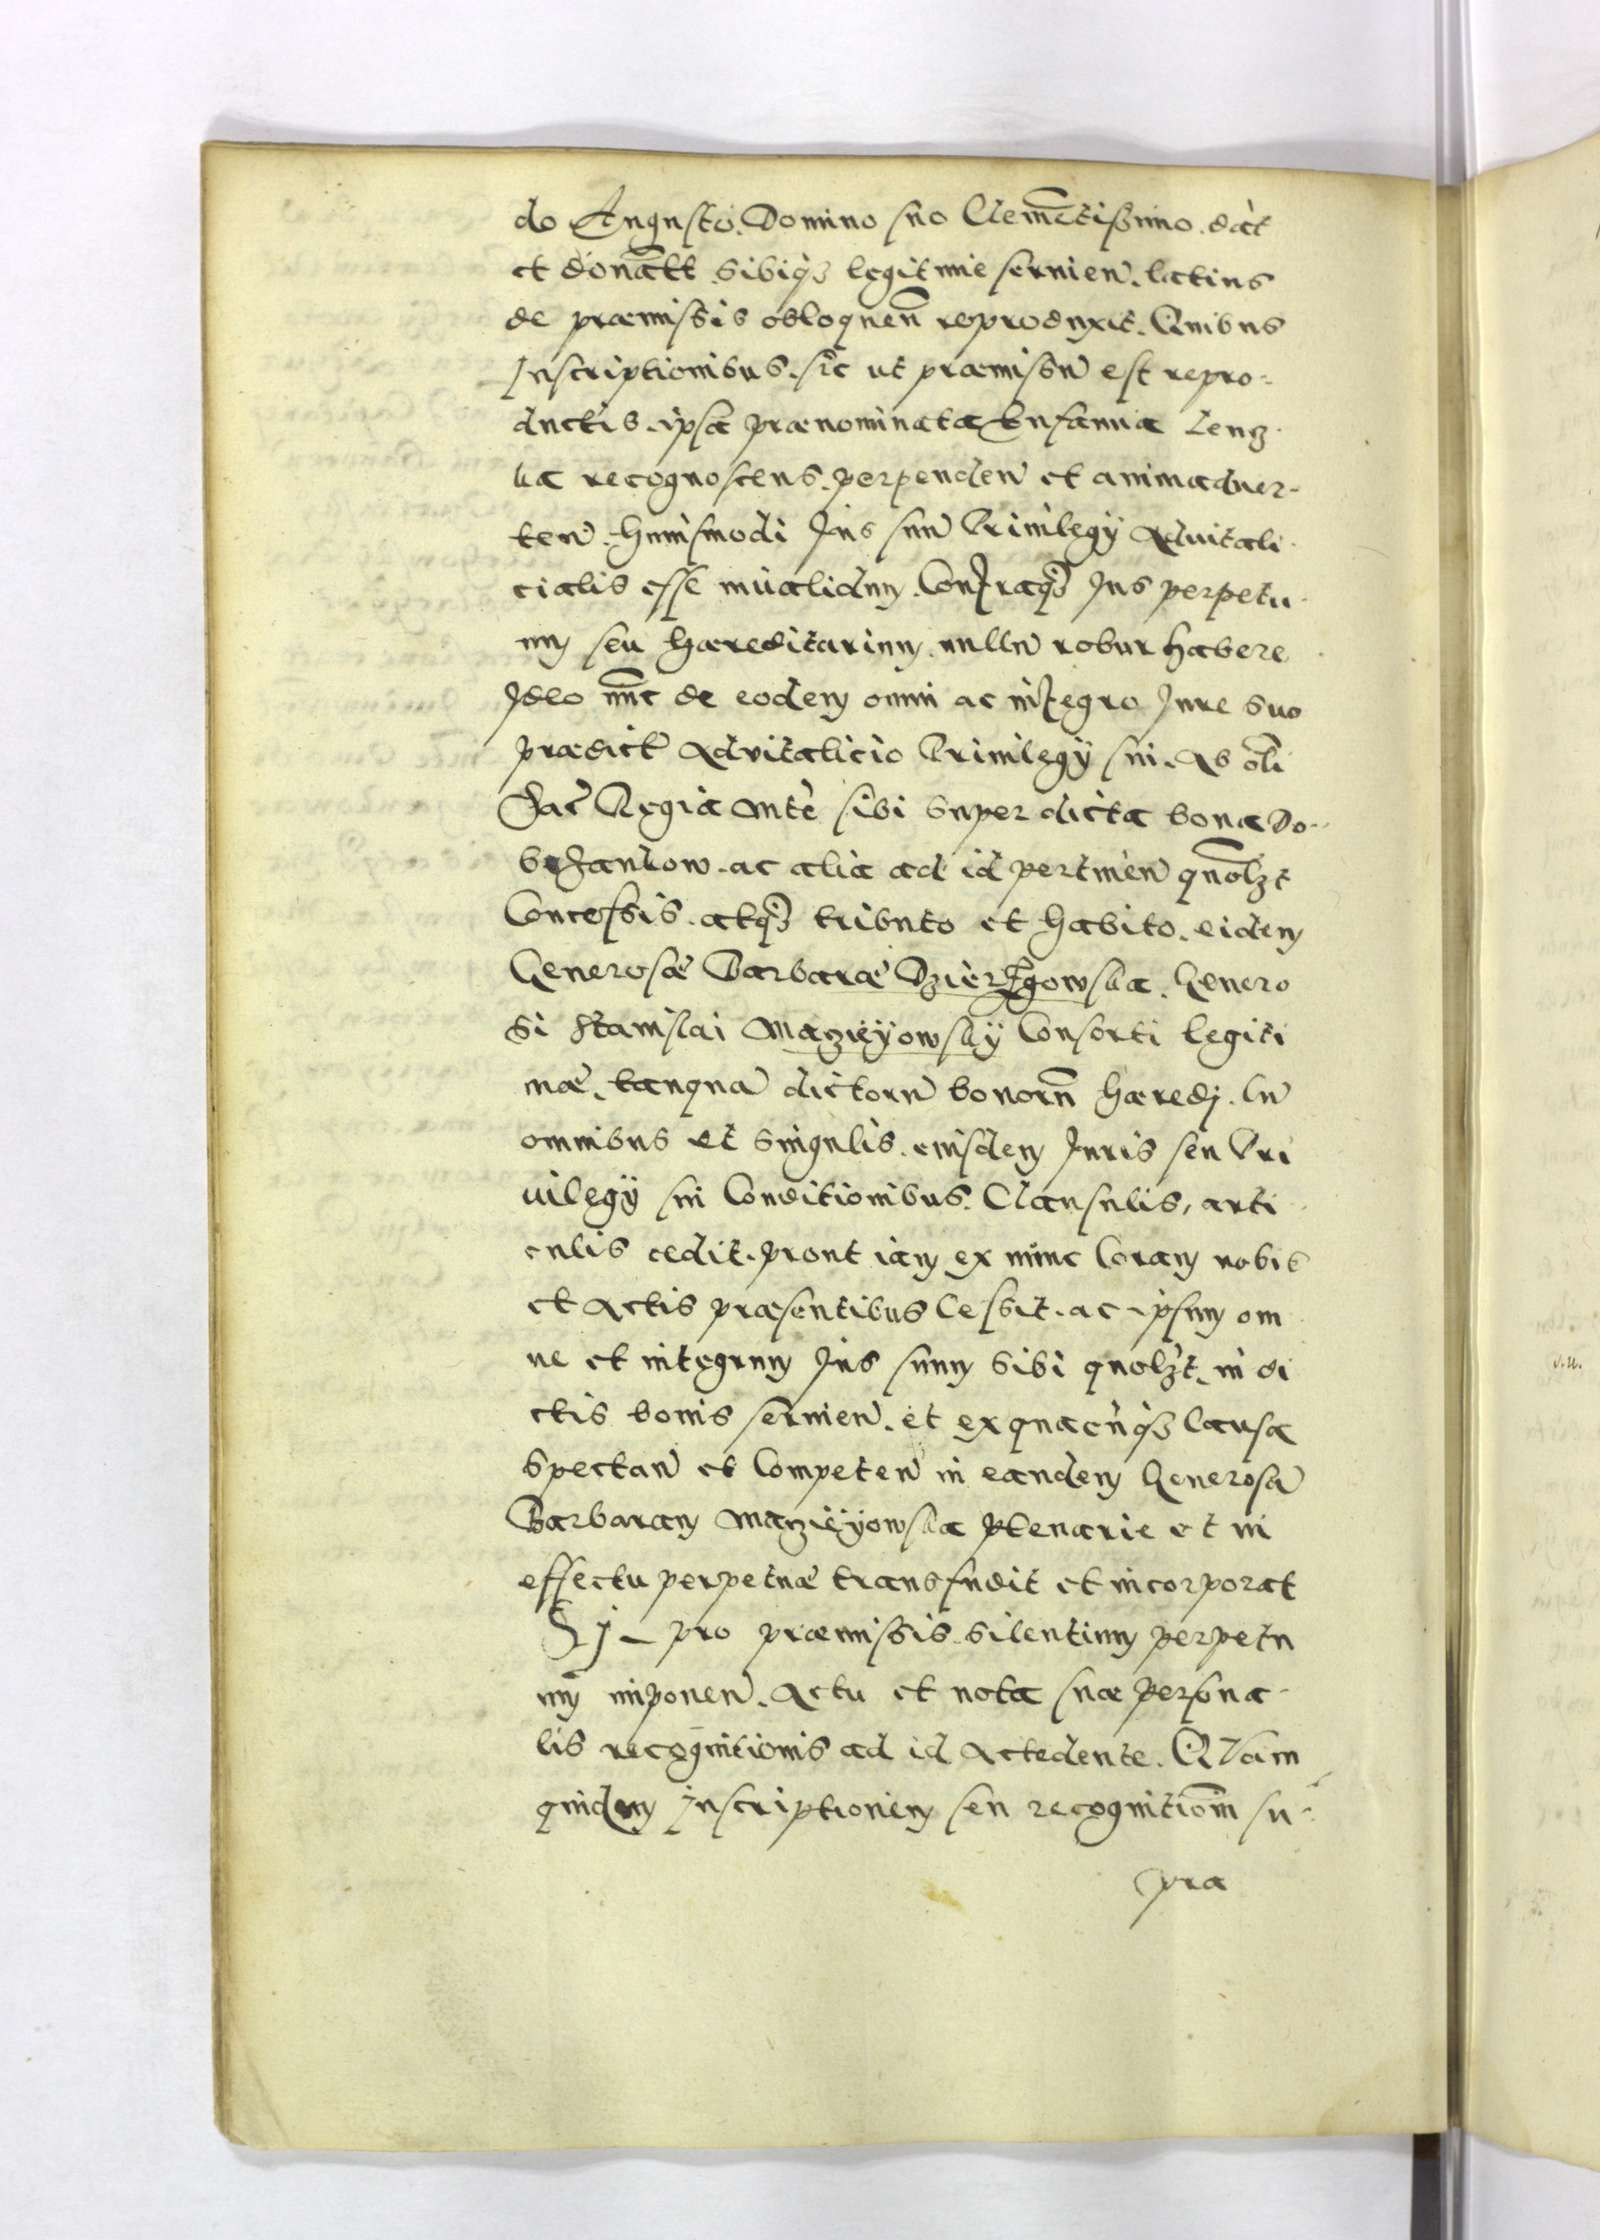 do Augusto. Domino suo Clemẽtissimo. dat
et donatt. sibiqʒ legitimè seruien̄. latius
de præmissis obloquen̄ reproduxit. Quibus
Inscriptionibus. sic ut præmissũ est repro-
ductis. ipsa prænominata Eufamia Leng
ka recognoscens. perpenden̄ et animaduer-
ten̄. huiusmodi Jus suũ Priuilegÿ Aduitali
cialis esse inualidum. Contraqʒ Jus perpetu
um seu hæreditarium. nullũ robur habere
Ideo nũc de eodem omni ac integro Jure suo
prædict Aduitalicio Priuilegÿ sui. Ab oli
Sac Regia Mte sibi super dicta bona Do-
bezankow. ac alia ad id pertinen̄ quolʒt
Concessis. atqʒ tributo et habito. eidem
Generosæ Barbaræ Dzierzgowska. Genero
si Stanislai Maziéyowsky Consorti legiti
mæ. tanquã dictorũ bonorũ hæredj. Cũ
omnibus et singulis. eiusdem Juris seu Pri
uilegÿ sui Conditionibus. Clausulis, arti
culis cedit. prout iam ex nunc Coram nobis
et Actis præsentibus Cessit. ac ipsum om
ne et integrum Jus suum sibi quolʒt. in di
ctis bonis seruien̄. et ex quacũqʒ Causa
spectan̄ et Competen̄ in eandem Generosã
Barbaram Maziéyowska plenarie et in
effectu perpetuæ transfudit et incorporat
Sj – pro præmissis silentium perpetu
um imponen̄. Actu et nota suæ persona-
lis recognitionis ad id Accedente. QVam
quidem Inscriptionem seu recognitiom̃ su-
pra